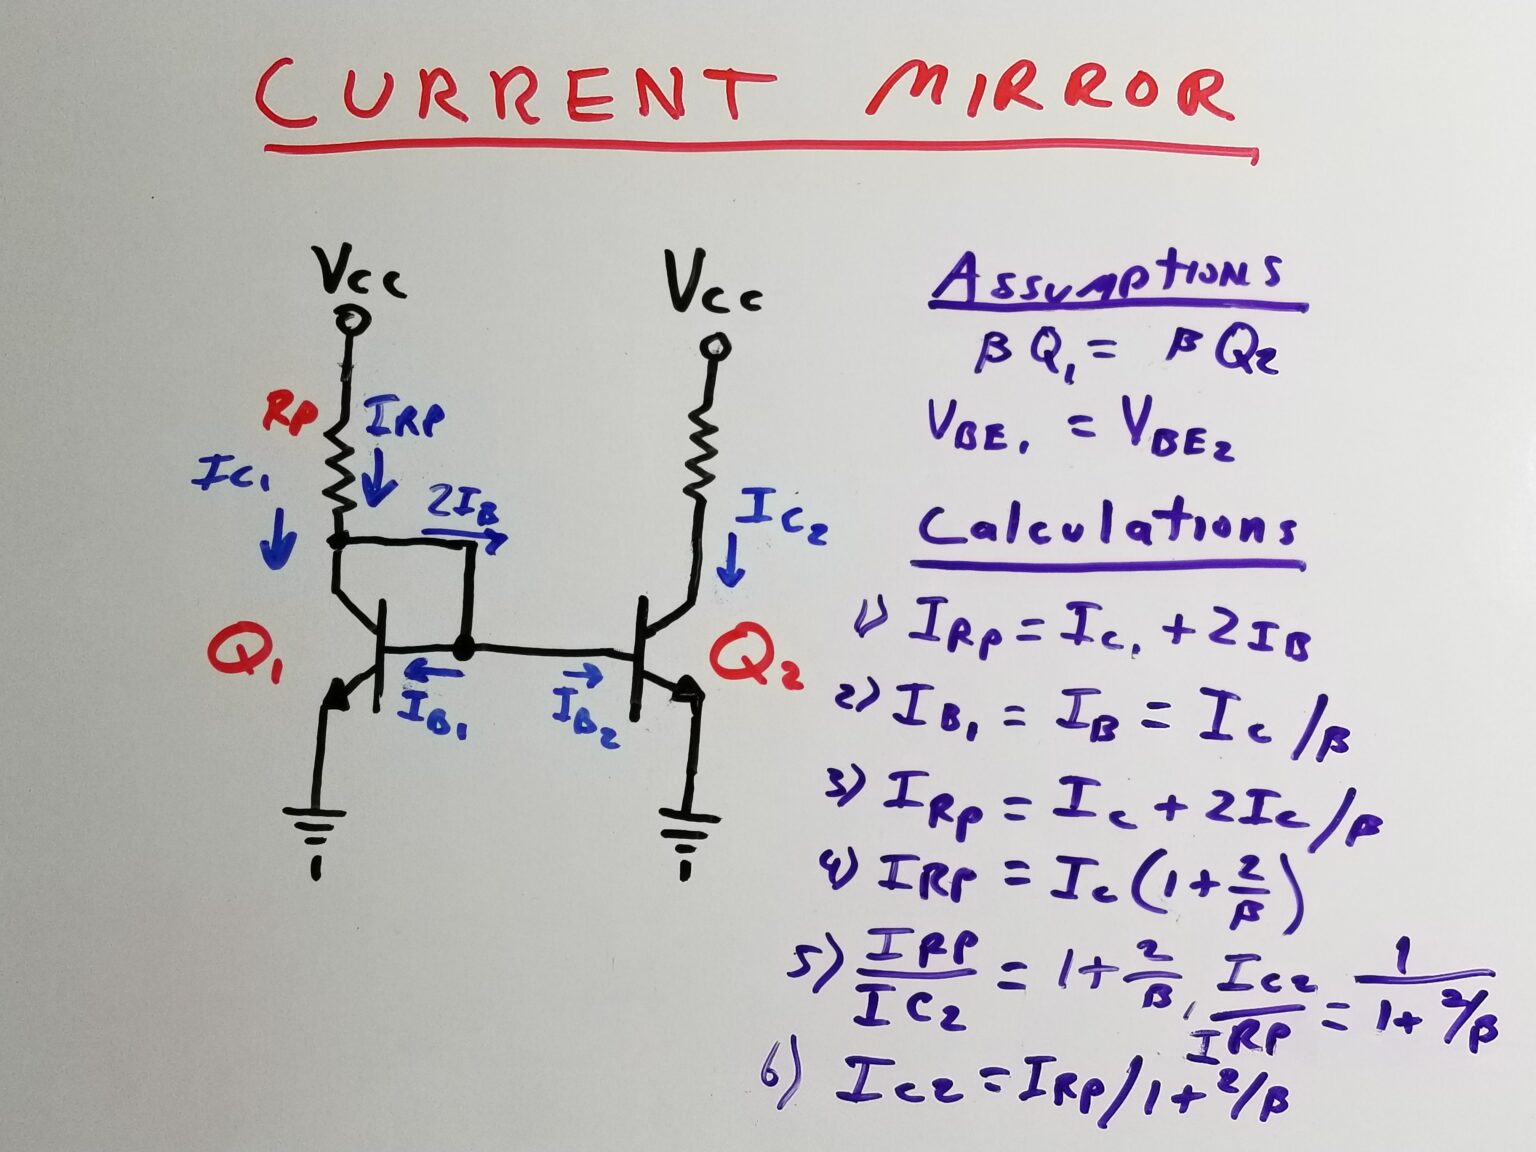 CURRENT MIRROR
Vcc
Vcc
RP
IRP
IC1
2IB
IC2
Q1
Q2
IB1
IB2
Assumptions
β Q1 = β Q2
VBE1 = VBE2
Calculations
1) IRP = IC1 + 2IB
2) IB1 = IB = Ic/β
3) IRP = Ic + 2Ic/β
4) IRP = Ic (1 + 2/β)
5) IRP/IC2 = 1 + 2/β, IC2/IRP = 1/1+2/β
6) IC2 = IRP/1+2/β